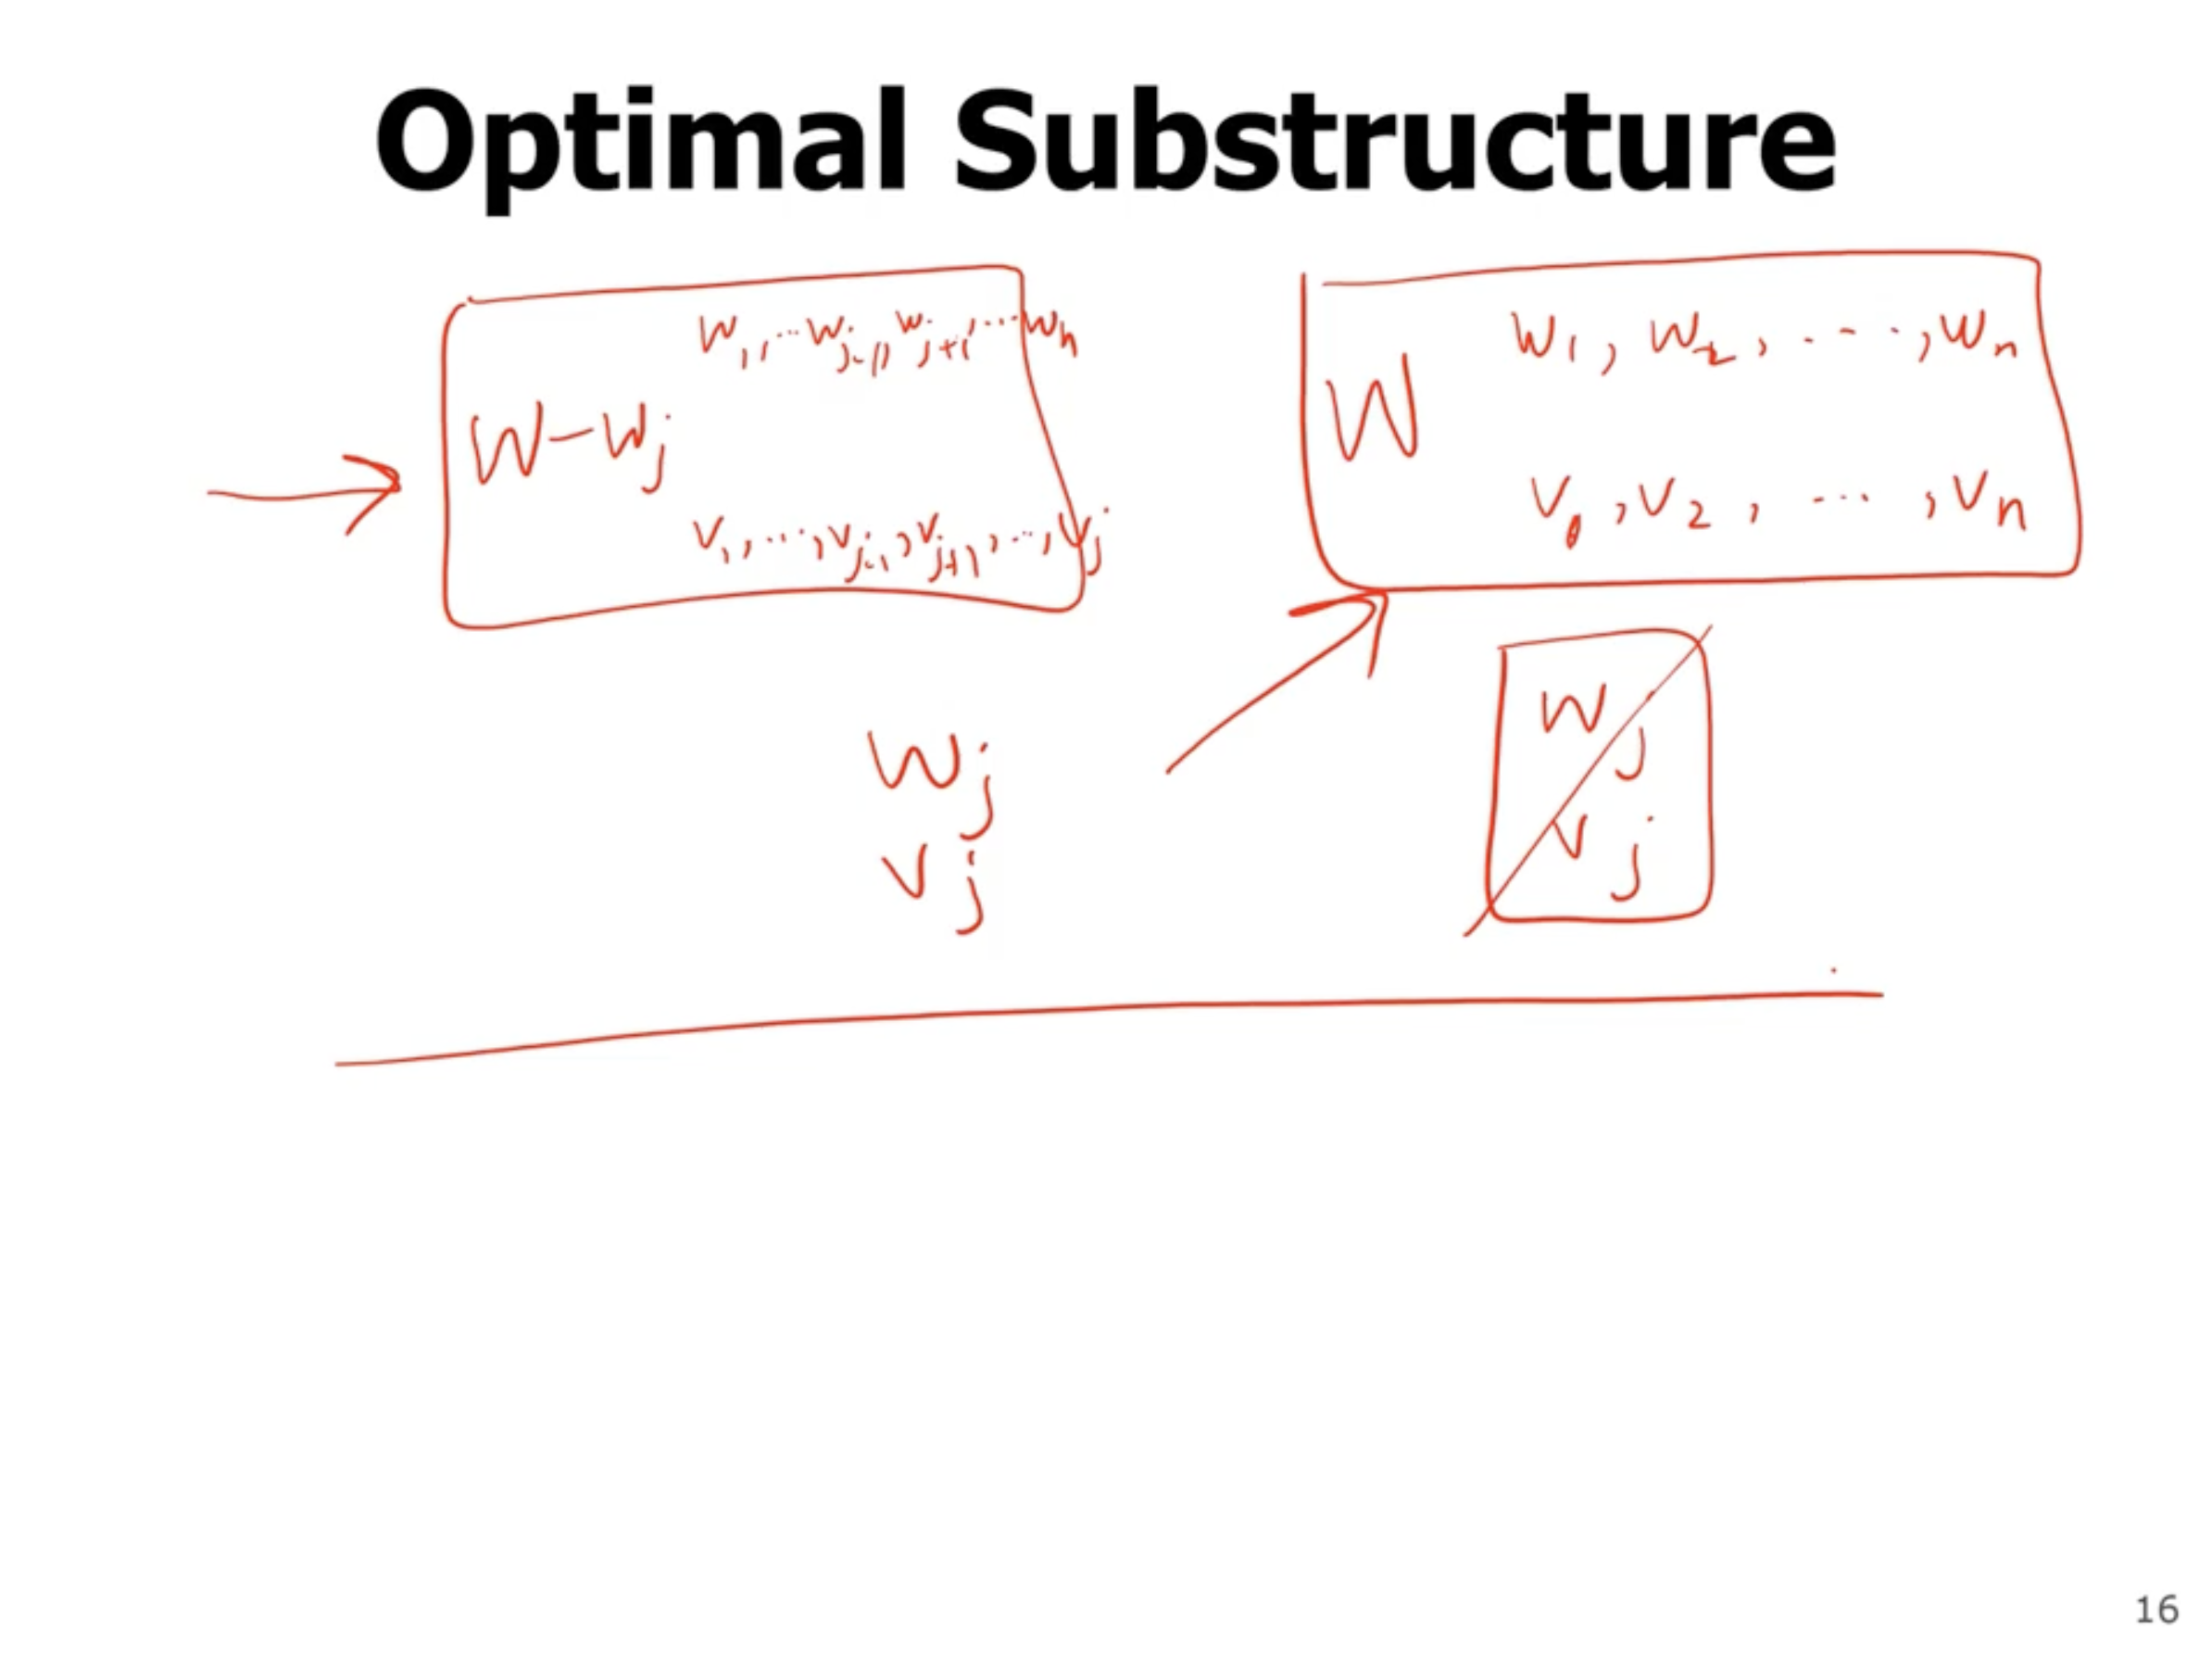 Optimal Substructure
w1,...wj-1, wj+1,...wn
W-wj
v1,...,vj-1,vj+1,...,vj
W
w1, w2, ...., wn
v1, v2, ..., vn
wj
vj
wj
vj
16